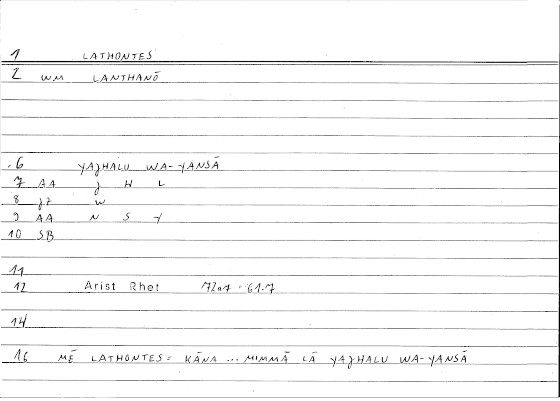 1 LATHONTES
2 WM LANTHANŌ
6 YAJHALU WA-YANSĀ
7 AA J H L
8 JZ W
9 AA N S Y
10 SB
11
12 Arist Rhet
14
16 MĒ LATHONTES = KĀNA ... MIMMĀ LĀ YAJHALU WA-YANSĀ